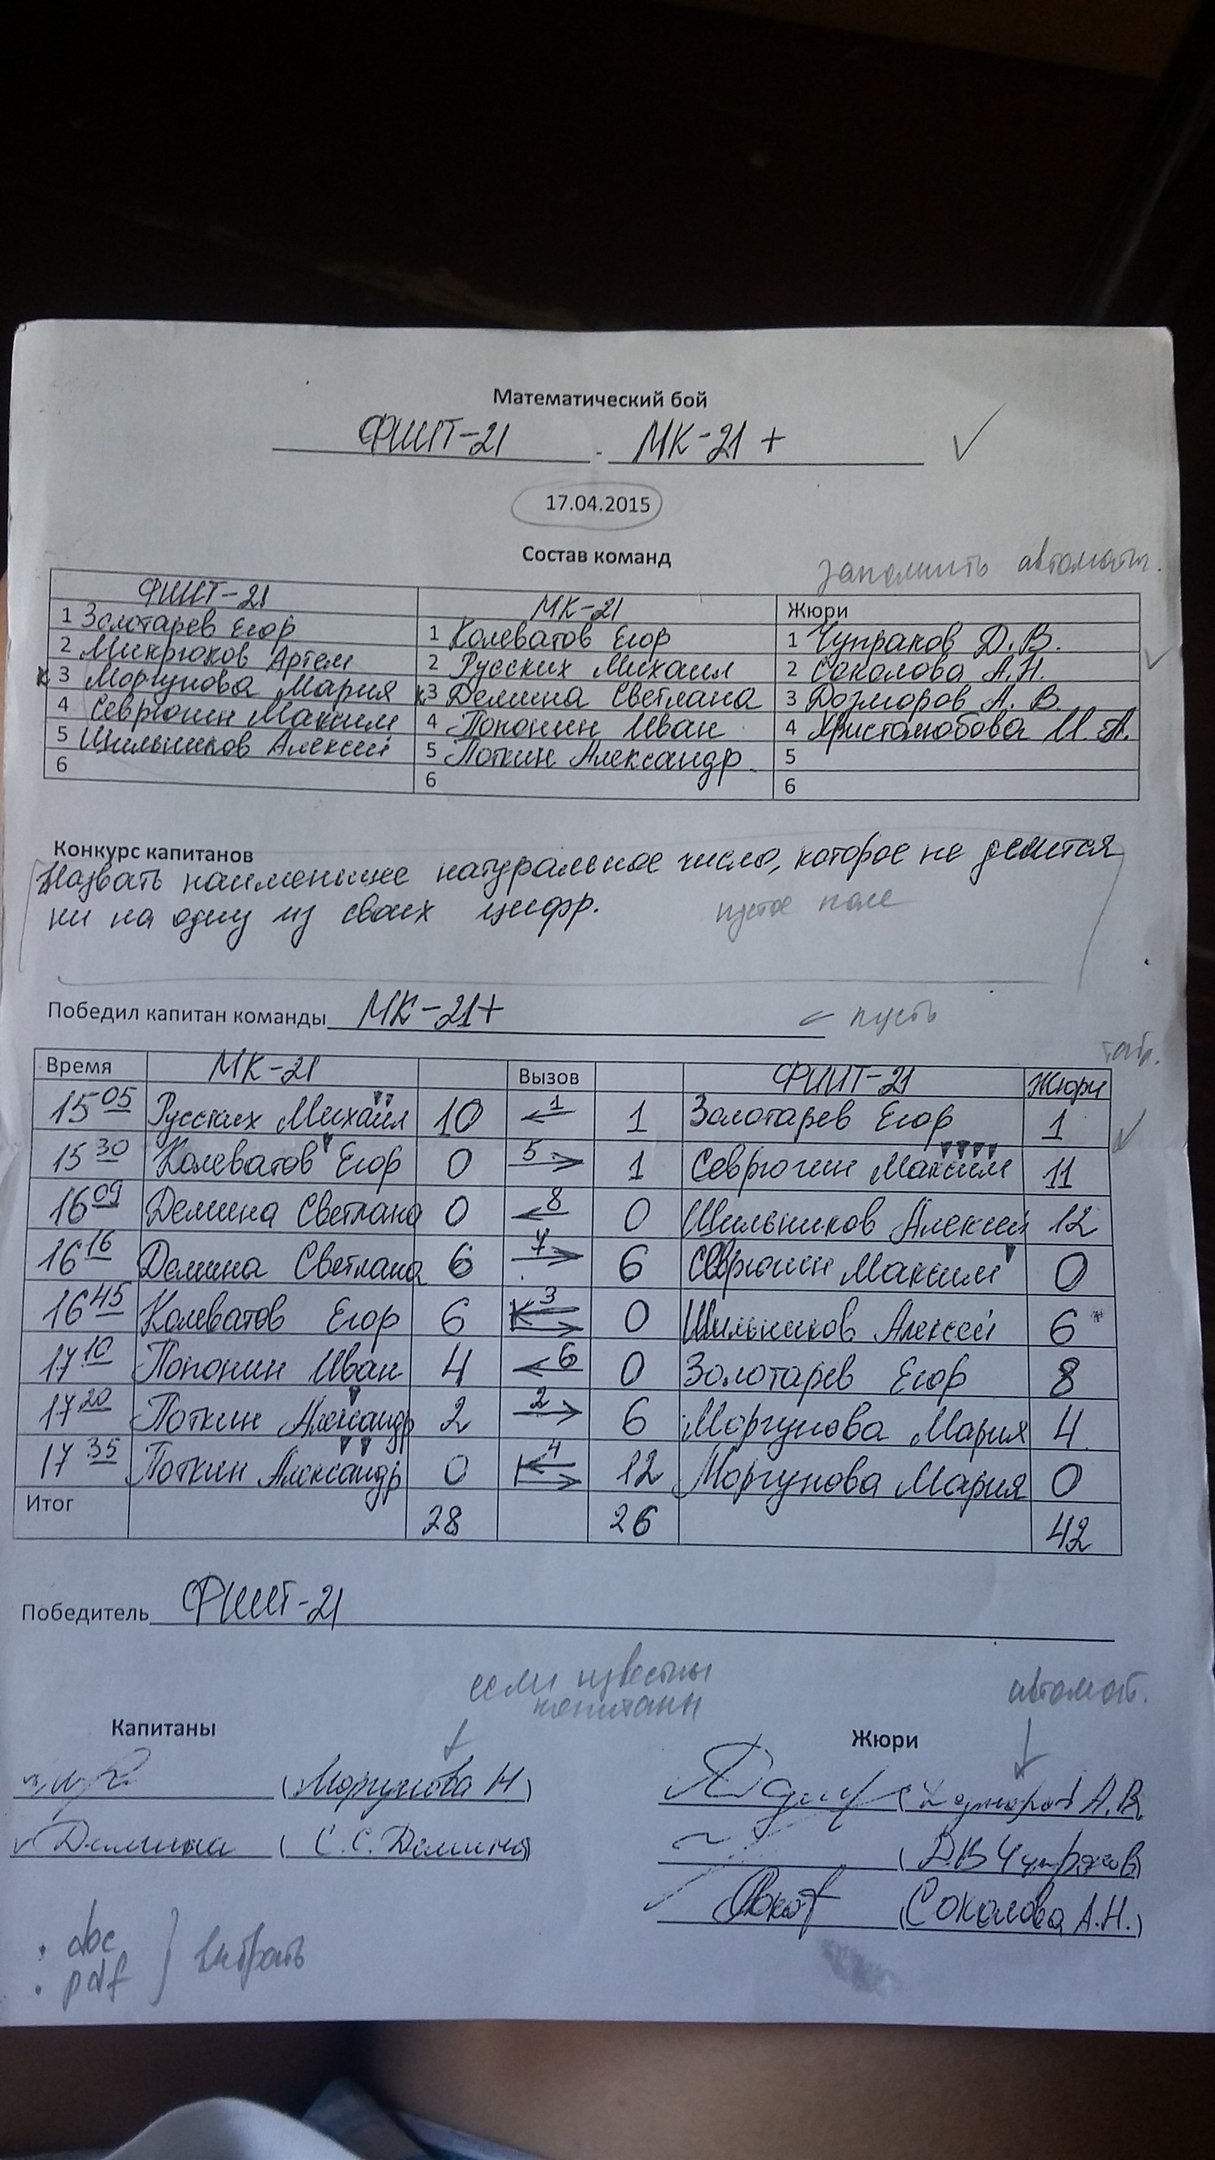 Математический бой
ФИИТ-21 - МК-21 +
17.04.2015
Состав команд
запомнить автоматы.
ФИИТ-21 МК-21 Жюри
1 Золотарев Егор 1 Колеватов Егор 1 Чупраков Д.В.
2 Микрюков Артем 2 Русских Михаил 2 Соколова А.Н.
к 3 Моргунова Мария к 3 Демина Светлана 3 Дозморов А. В
4 Севрюгин Максим 4 Попонин Иван 4 Христолюбова И. А.
5 Шильников Алексей 5 Поткин Александр 5
6 6 6
Конкурс капитанов
Назвать наименьшее натуральное число, которое не делится
ни на одну из своих цифр. пустое поле
Победил капитан команды МК-21+ ← пусть
таб.
Время МК-21 Вызов ФИИТ-21 Жюри
15 05 Русских Михаил 10 ←1 1 Золотарев Егор 1
15 30 Колеватов Егор 0 5→ 1 Севрюгин Максим 11
16 09 Демина Светлана 0 ←8 0 Шильников Алексей 12
16 16 Демина Светлана 6 7→ 6 Севрюгин Максим 0
16 45 Колеватов Егор 6 3 0 Шильников Алексей 6 *
17 10 Попонин Иван 4 ←6 0 Золотарев Егор 8
17 20 Поткин Александр 2 2→ 6 Моргунова Мария 4
17 35 Поткин Александр 0 4 12 Моргунова Мария 0
Итог 28 26 42
Победитель ФИИТ-21
если известны
капитаны
автомат.
Капитаны Жюри
(Моргунова Н) (Дозморов А.В.
Демина (С.С. Демина) (Д.В Чупраков)
(Соколова А.Н.)
. doc
. pdf } выбрать